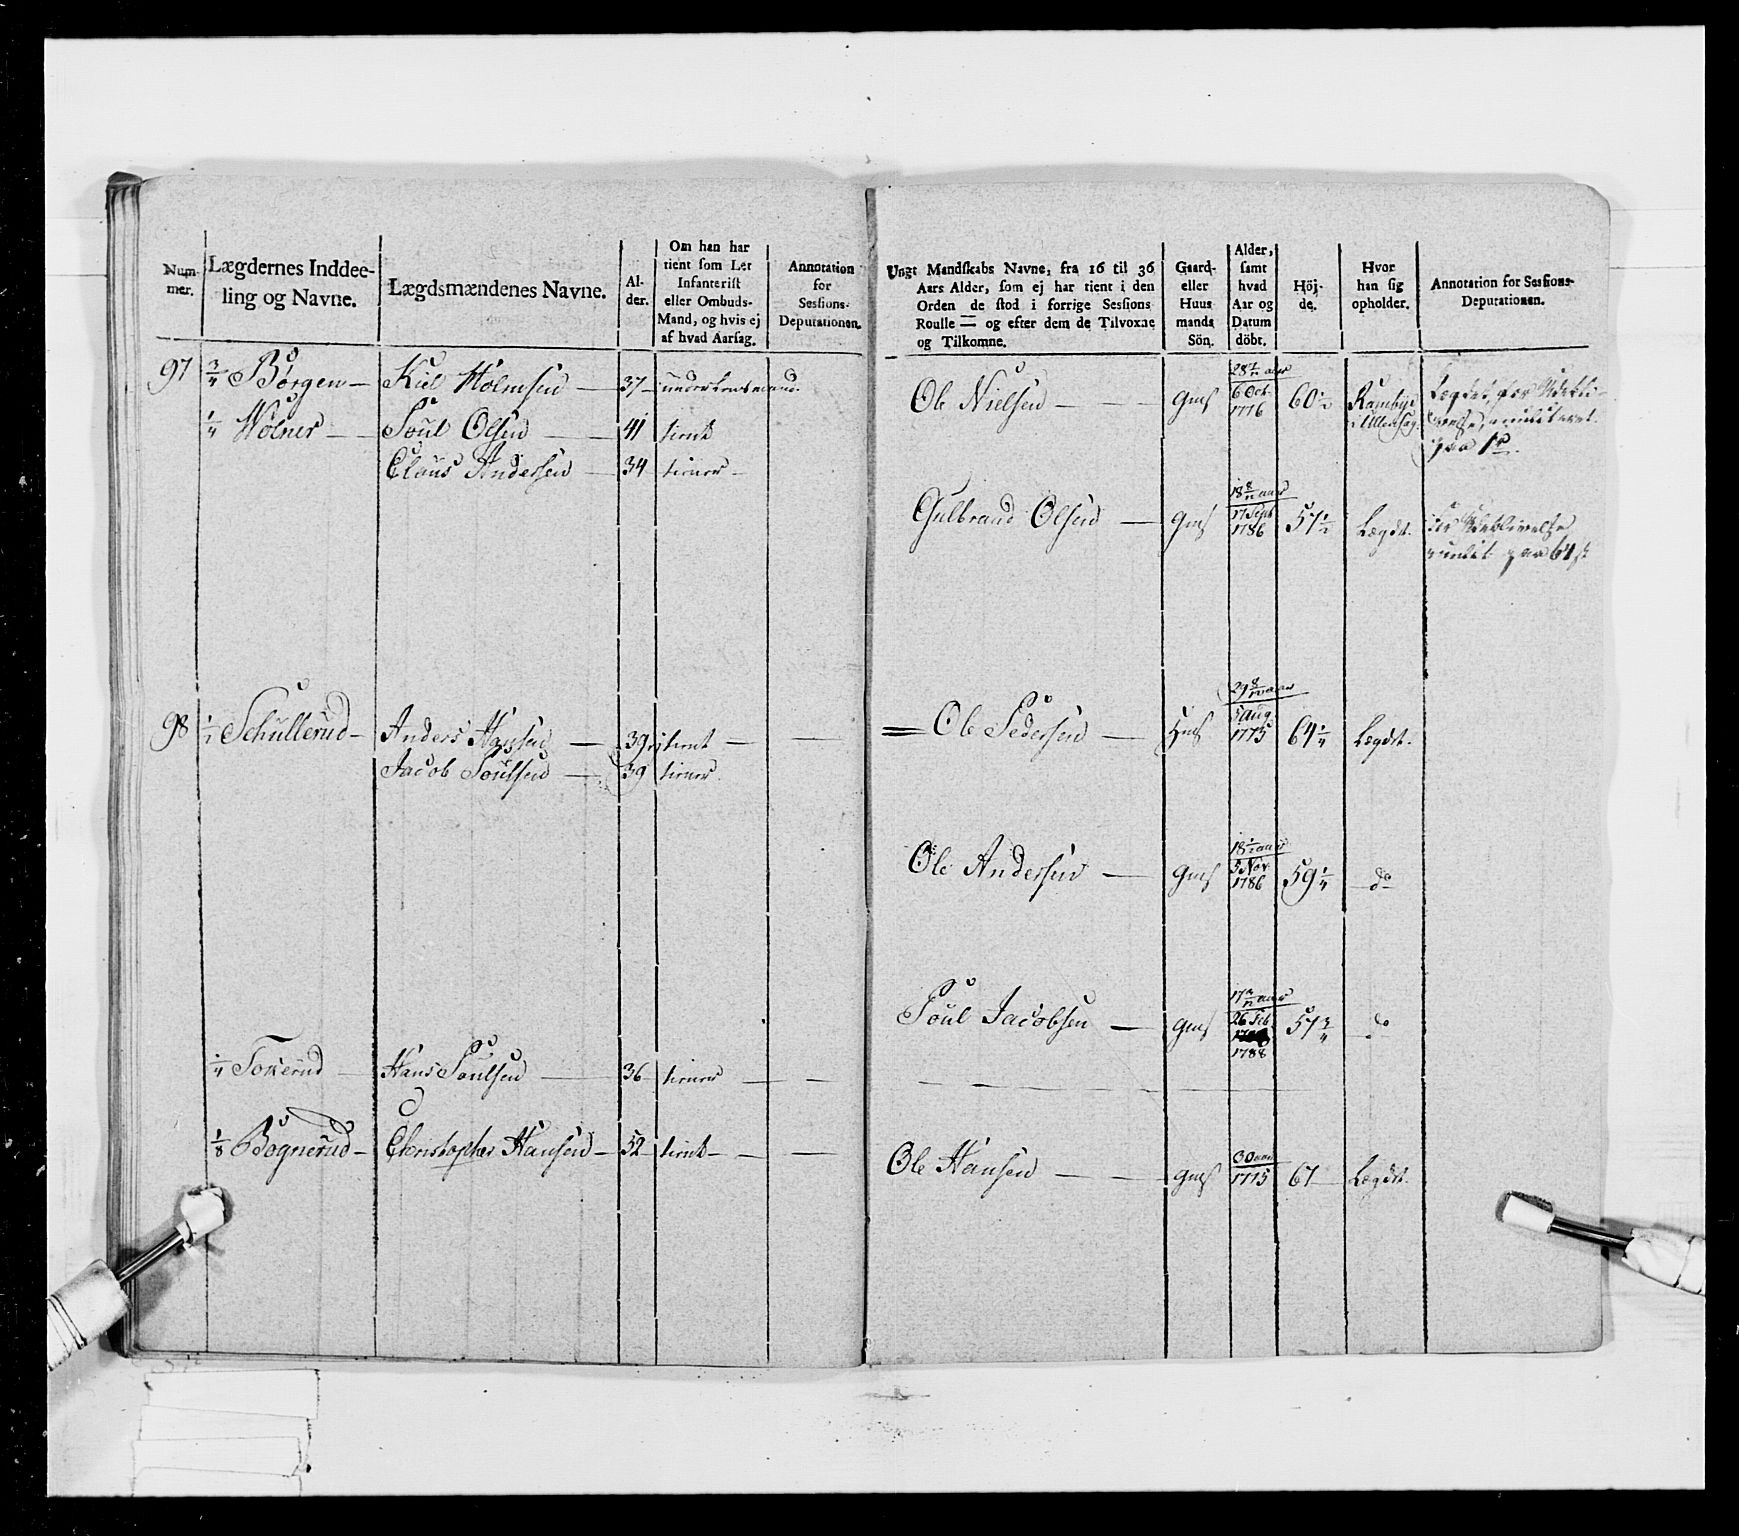 Num-
mer.
Lægdernes Inddee-
ling og Navne.
Lægdsmændenes Navne.
Al-
der.
Om han har
tient som Let
Infanterist
eller Ombuds-
Mand, og hvis ej
af hvad Aarsag.
Annotation
for
Sessions-
Deputationen.
97 3/4 Børgen — Kiel Holmsen — 37 — underlensmand.
1/4 Wolner — Poul Olsen — 41 tient
Claus Andersen — 34 tiener —
98 1/1 Schullerud — Anders Hansen — 39 tient — —
Jacob Poulsen — 39 tiener.
1/4 Tokerud — Hans Poulsen — 36 tiener — —
1/8 Bognerud — Christopher Hansen — 52 tient — — —
Ungt Mandskabs Navne, fra 16 til 36
Aars Alder, som ej har tient i den
Orden de stod i forrige Sessions
Roulle — og efter dem de Tilvoxne
og Tilkomne.
Gaard-
eller
Huus
mands
Sön.
Alder,
samt
hvad
Aar og
Datum
döbt.
Höj-
de.
Hvor
han sig
opholder.
Annotation for Sessions-
Deputationen.
28 aar
Ole Nielsen — — Gmf 6 Oct. 1776 60 1/2
i Ullensag.
paa
18 8/12 aar
Gulbrand Olsen — Gmf 17 Sept 1786 57 1/2 Lægdet. for Udeblivelse
paa 64 s
29 8/12 aar
= Ole Pedersen — Hmf 5 Aug. 1775 64 1/4 Lægdet.
18 aar
Ole Andersen — Gmf 5 Nov. 1786 59 1/4 — do
17 aar
Poul Jacobsen — Gmf 26 Feb. 57 3/4 do
1788
30 aar
Ole Hansen — — Gmf 1775 67 — Lægdet.